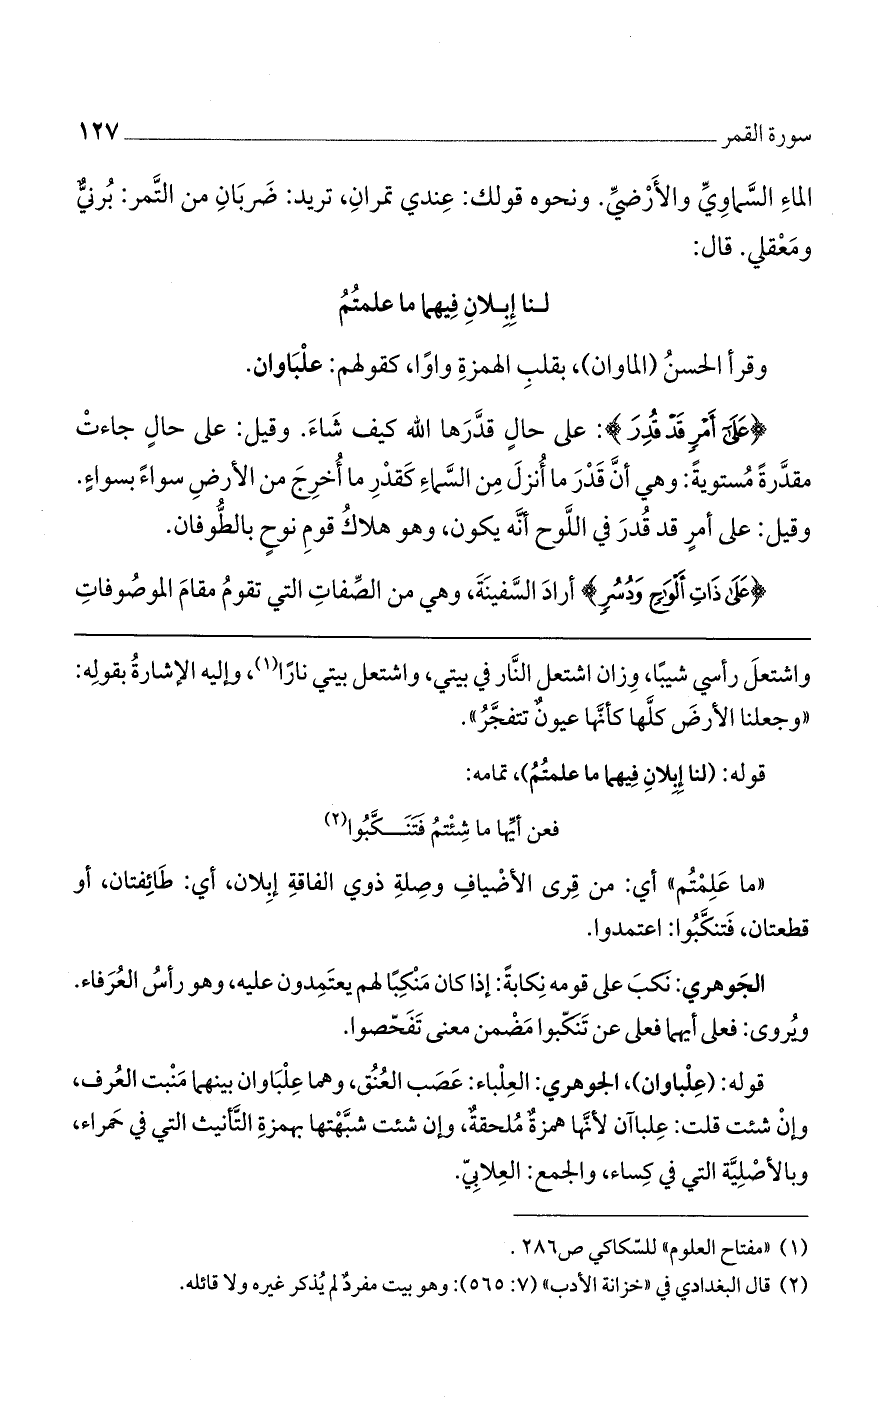 سورة القمر ١٢٧
الماءِ السَّماوِيِّ والأَرْضيِّ. ونحوه قولك: عِندي تمرانِ، تريد: ضَربَانِ من التَّمر: بُرنيٌّ
ومَعْقلي. قال:
لـنا إِبِـلانِ فِيهما ما علمتُمُ
وقرأ الحسنُ (الماوان)، بقلبِ الهمزةِ واوًا، كقولهم: علْبَاوان.
﴿عَلَىٰٓ أَمْرٍ قَدْ قُدِرَ﴾: على حالٍ قدَّرَها الله كيف شَاءَ. وقيل: على حالٍ جاءتْ
مقدَّرةً مُستويةً: وهي أنَّ قَدْرَ ما أُنزلَ مِن السَّماءِ كَقدْرِ ما أُخرِجَ من الأرضِ سواءً بسواءٍ.
وقيل: على أمرٍ قد قُدرَ في اللَّوح أنَّه يكون، وهو هلاكُ قومِ نوحٍ بالطُّوفان.
﴿عَلَىٰ ذَاتِ أَلْوَٰحٍ وَدُسُرٍ﴾ أرادَ السَّفينَةَ، وهي من الصِّفاتِ التي تقومُ مقامَ الموصُوفاتِ
واشتعلَ رأسي شيبًا، وِزان اشتعل النَّار في بيتي، واشتعل بيتي نارًا(١)، وإليه الإشارةُ بقولِه:
«وجعلنا الأرضَ كلَّها كأنَّها عيونٌ تتفجَّرُ».
قوله: (لنا إِبِلانِ فِيهما ما علمتُمُ)، تمامه:
فعن أيِّها ما شِئْتمُ فَتَنَـــكَّبُوا(٢)
«ما عَلِمْتُم» أي: من قِرى الأضْيافِ وصِلةِ ذوي الفاقةِ إبِلان، أي: طَائِفتان، أو
قطعتان، فَتنكَّبُوا: اعتمدوا.
الجَوهري: نَكبَ على قومه نِكابةً: إذا كان مَنْكِبًا لهم يعتَمِدون عليه، وهو رأسُ العُرَفاء.
ويُروى: فعلى أيهما فعلى عن تَنَكّبوا مَضْمن معنى تَفَحّصوا.
قوله: (عِلْباوان)، الجوهري: العِلْباء: عَصَب العُنُق، وهما عِلْبَاوان بينهما مَنْبت العُرف،
وإنْ شئت قلت: عِلباآن لأنَّها همزةٌ مُلحقةٌ، وإن شئت شبَّهْتها بهمزةِ التَّأنيث التي في حَمراء،
وبالأصْلِيَّة التي في كِساء، والجمع: العلابِيّ.
(١) «مفتاح العلوم» للسّكاكي ص٢٨٦ .
(٢) قال البغدادي في «خزانة الأدب» (٧: ٥٦٥): وهو بيت مفردٌ لم يُذكر غيره ولا قائله.